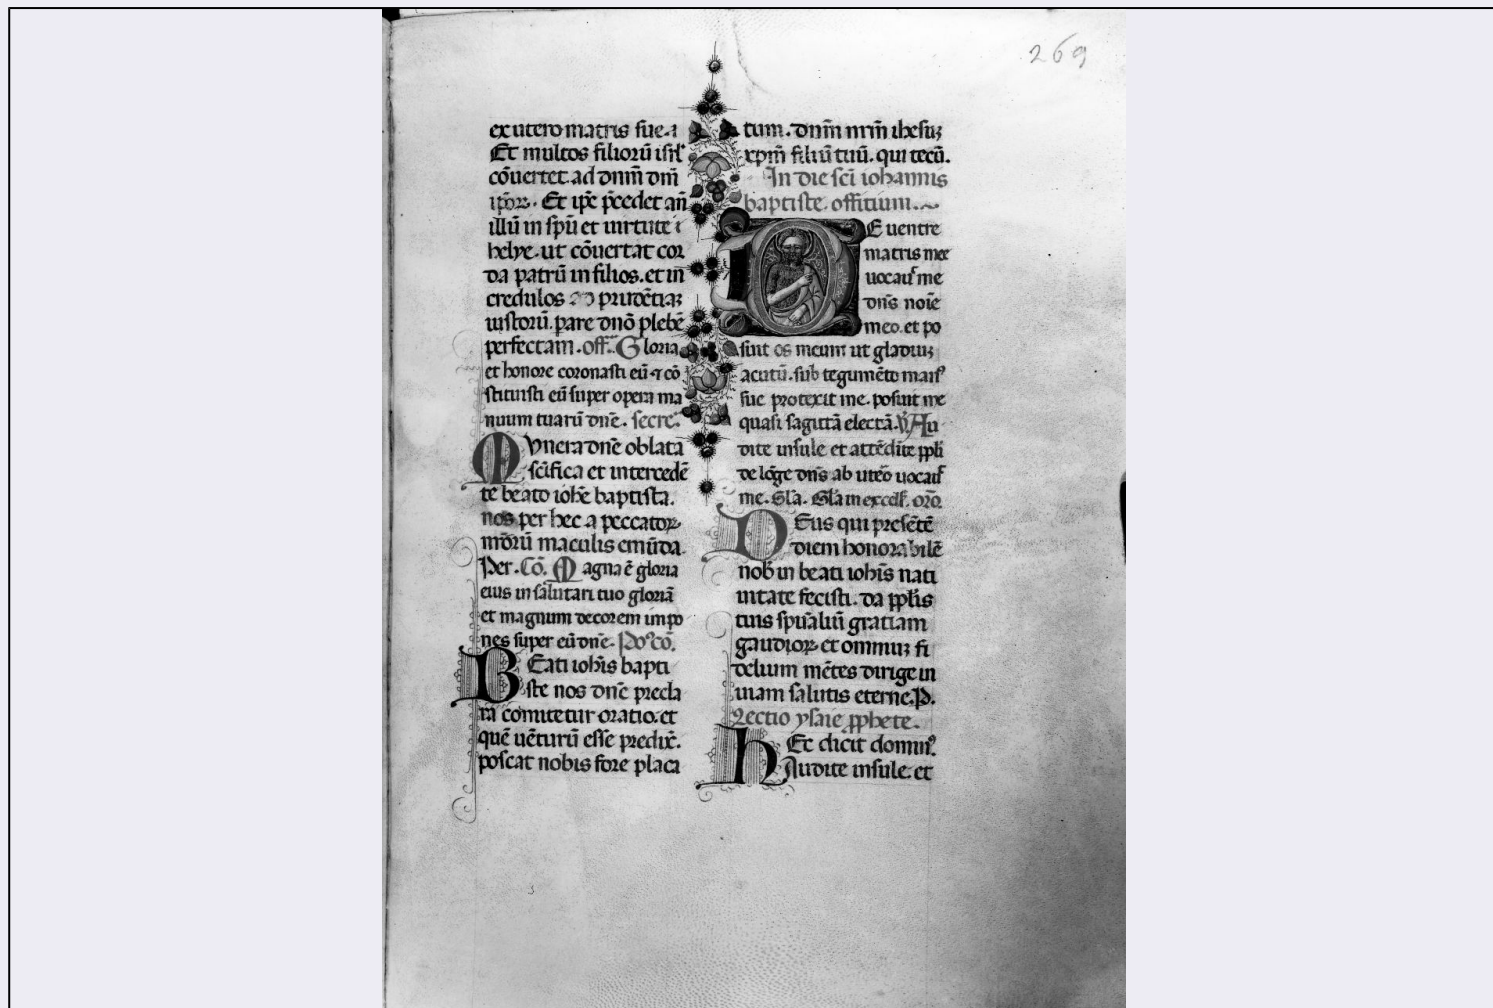 269
ex utero matris sue. ⁊
Et multos filiorū isrl'
cōuertet ad dnm̄ dm̄
ipōꝝ. Et ip̄e p̄cedet an̄
illū in sp̄u et uirtute
helye. ut cōuertat cor
da patrū in filios. et in
credulos ad prudētiaꝫ
iustorū. parare dn̄o plebē
perfectam. off. Gloria
et honore coronasti eū ⁊ cō
stituisti eū super opera ma
nuum tuarū dn̄e. secre.
Mvnera dn̄e oblata
sc̄ifica et intercedē
te beato ioh̄e baptista.
nos per hec a peccatoꝝ
nr̄orū maculis emūda.
Per. Cō. Magna ē gloria
eius in salutari tuo gloriā
et magnum decorem impo
nes super eū dn̄e. Po' cō.
BEati ioh̄is bapti
ste nos dn̄e precla
ra comitetur oratio. et
quē uēturū esse predix̄.
poscat nobis fore placa
tum. dnm̄ nrm̄ ihesuꝫ
xpm̄ filiū tuū. qui tecū.
In die sc̄i iohannis
baptiste offitium.
DE uentre
matris mee
uocauᷓ me
dn̄s noīe
meo. et po
suit os meum ut gladiuꝫ
acutū. sub tegumēto man'
sue protexit me. posuit me
quasi sagittā electā. V̄. Au
dite insule et attēdite pp̄li
de lōge dn̄s ab utēo uocauᷓ
me. Gl̄a. Gl̄a in excel'. orō.
DEus qui presētē
diem honorabilē
nob̄ in beati ioh̄is nati
uitate fecisti. da pp̄lis
tuis sp̄ualiū gratiam
gaudioꝝ et omniuꝫ fi
delium mētes dirige in
uiam salutis eterne. P.
Lectio ysaie pp̄hete.
HEc dicit domin'.
Audite insule. et